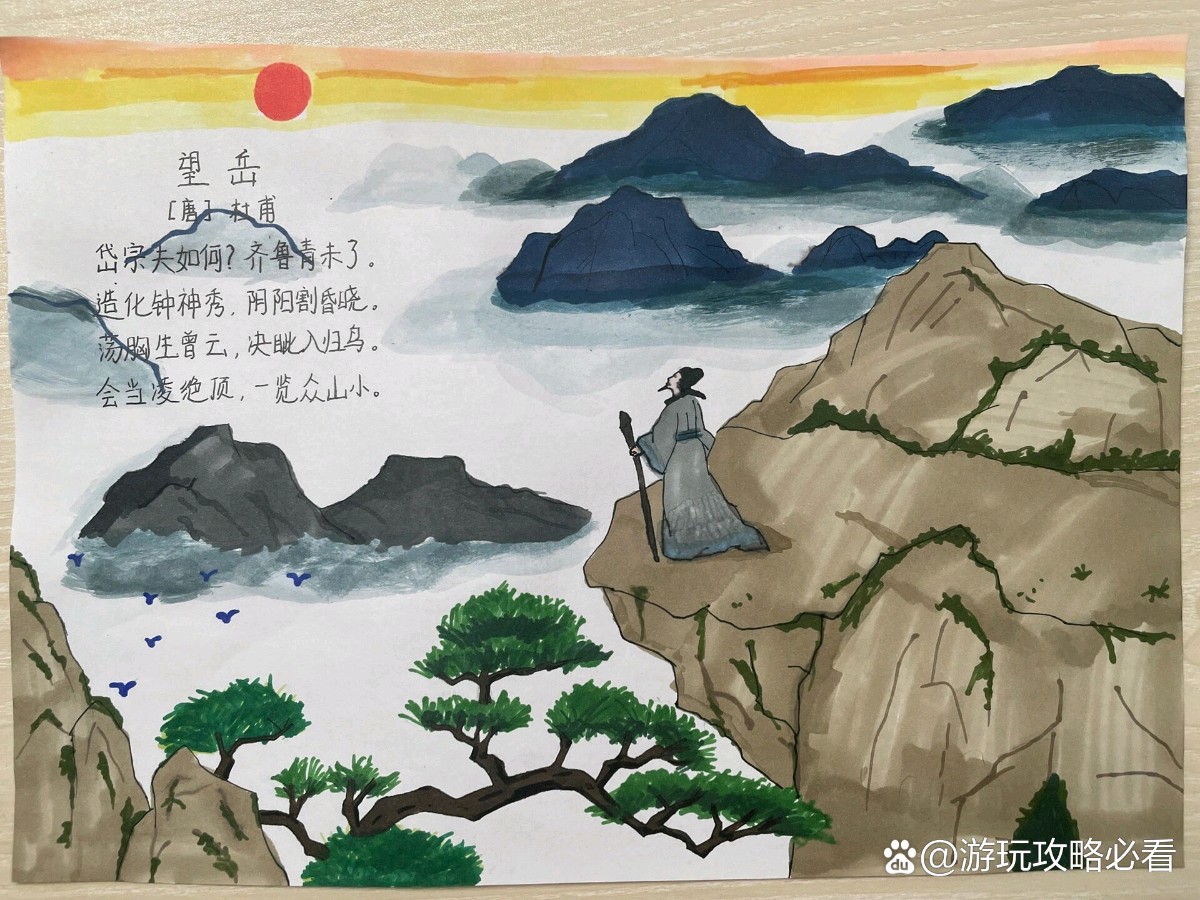 望岳
[唐] 杜甫
岱宗夫如何?齐鲁青未了。
造化钟神秀,阴阳割昏晓。
荡胸生曾云,决眦入归鸟。
会当凌绝顶,一览众山小。
du @游玩攻略必看